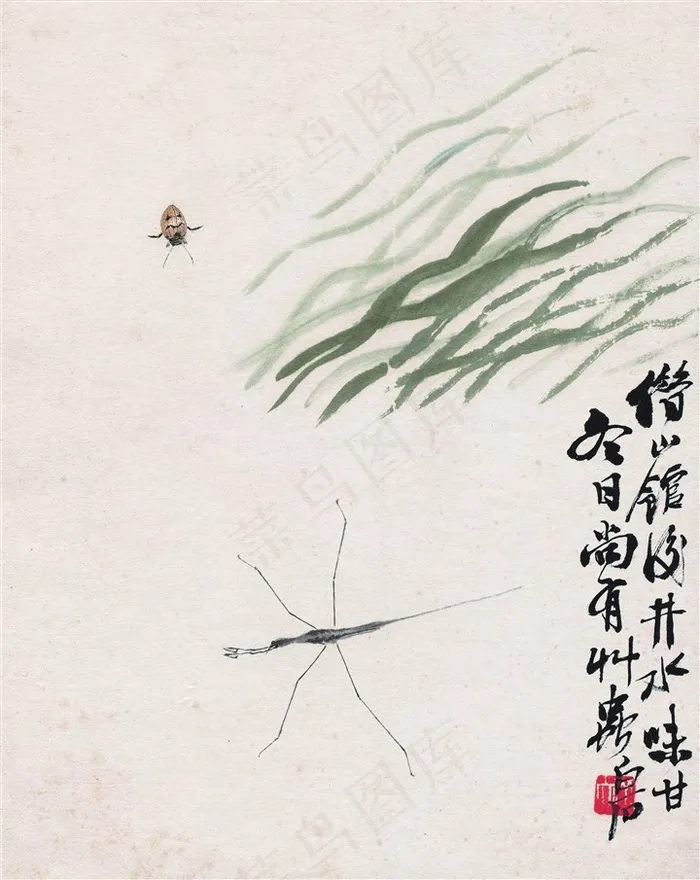 借山馆後井水味甘
冬日尚有艸虫 白石
菜鸟图库
菜鸟图库
菜鸟图库